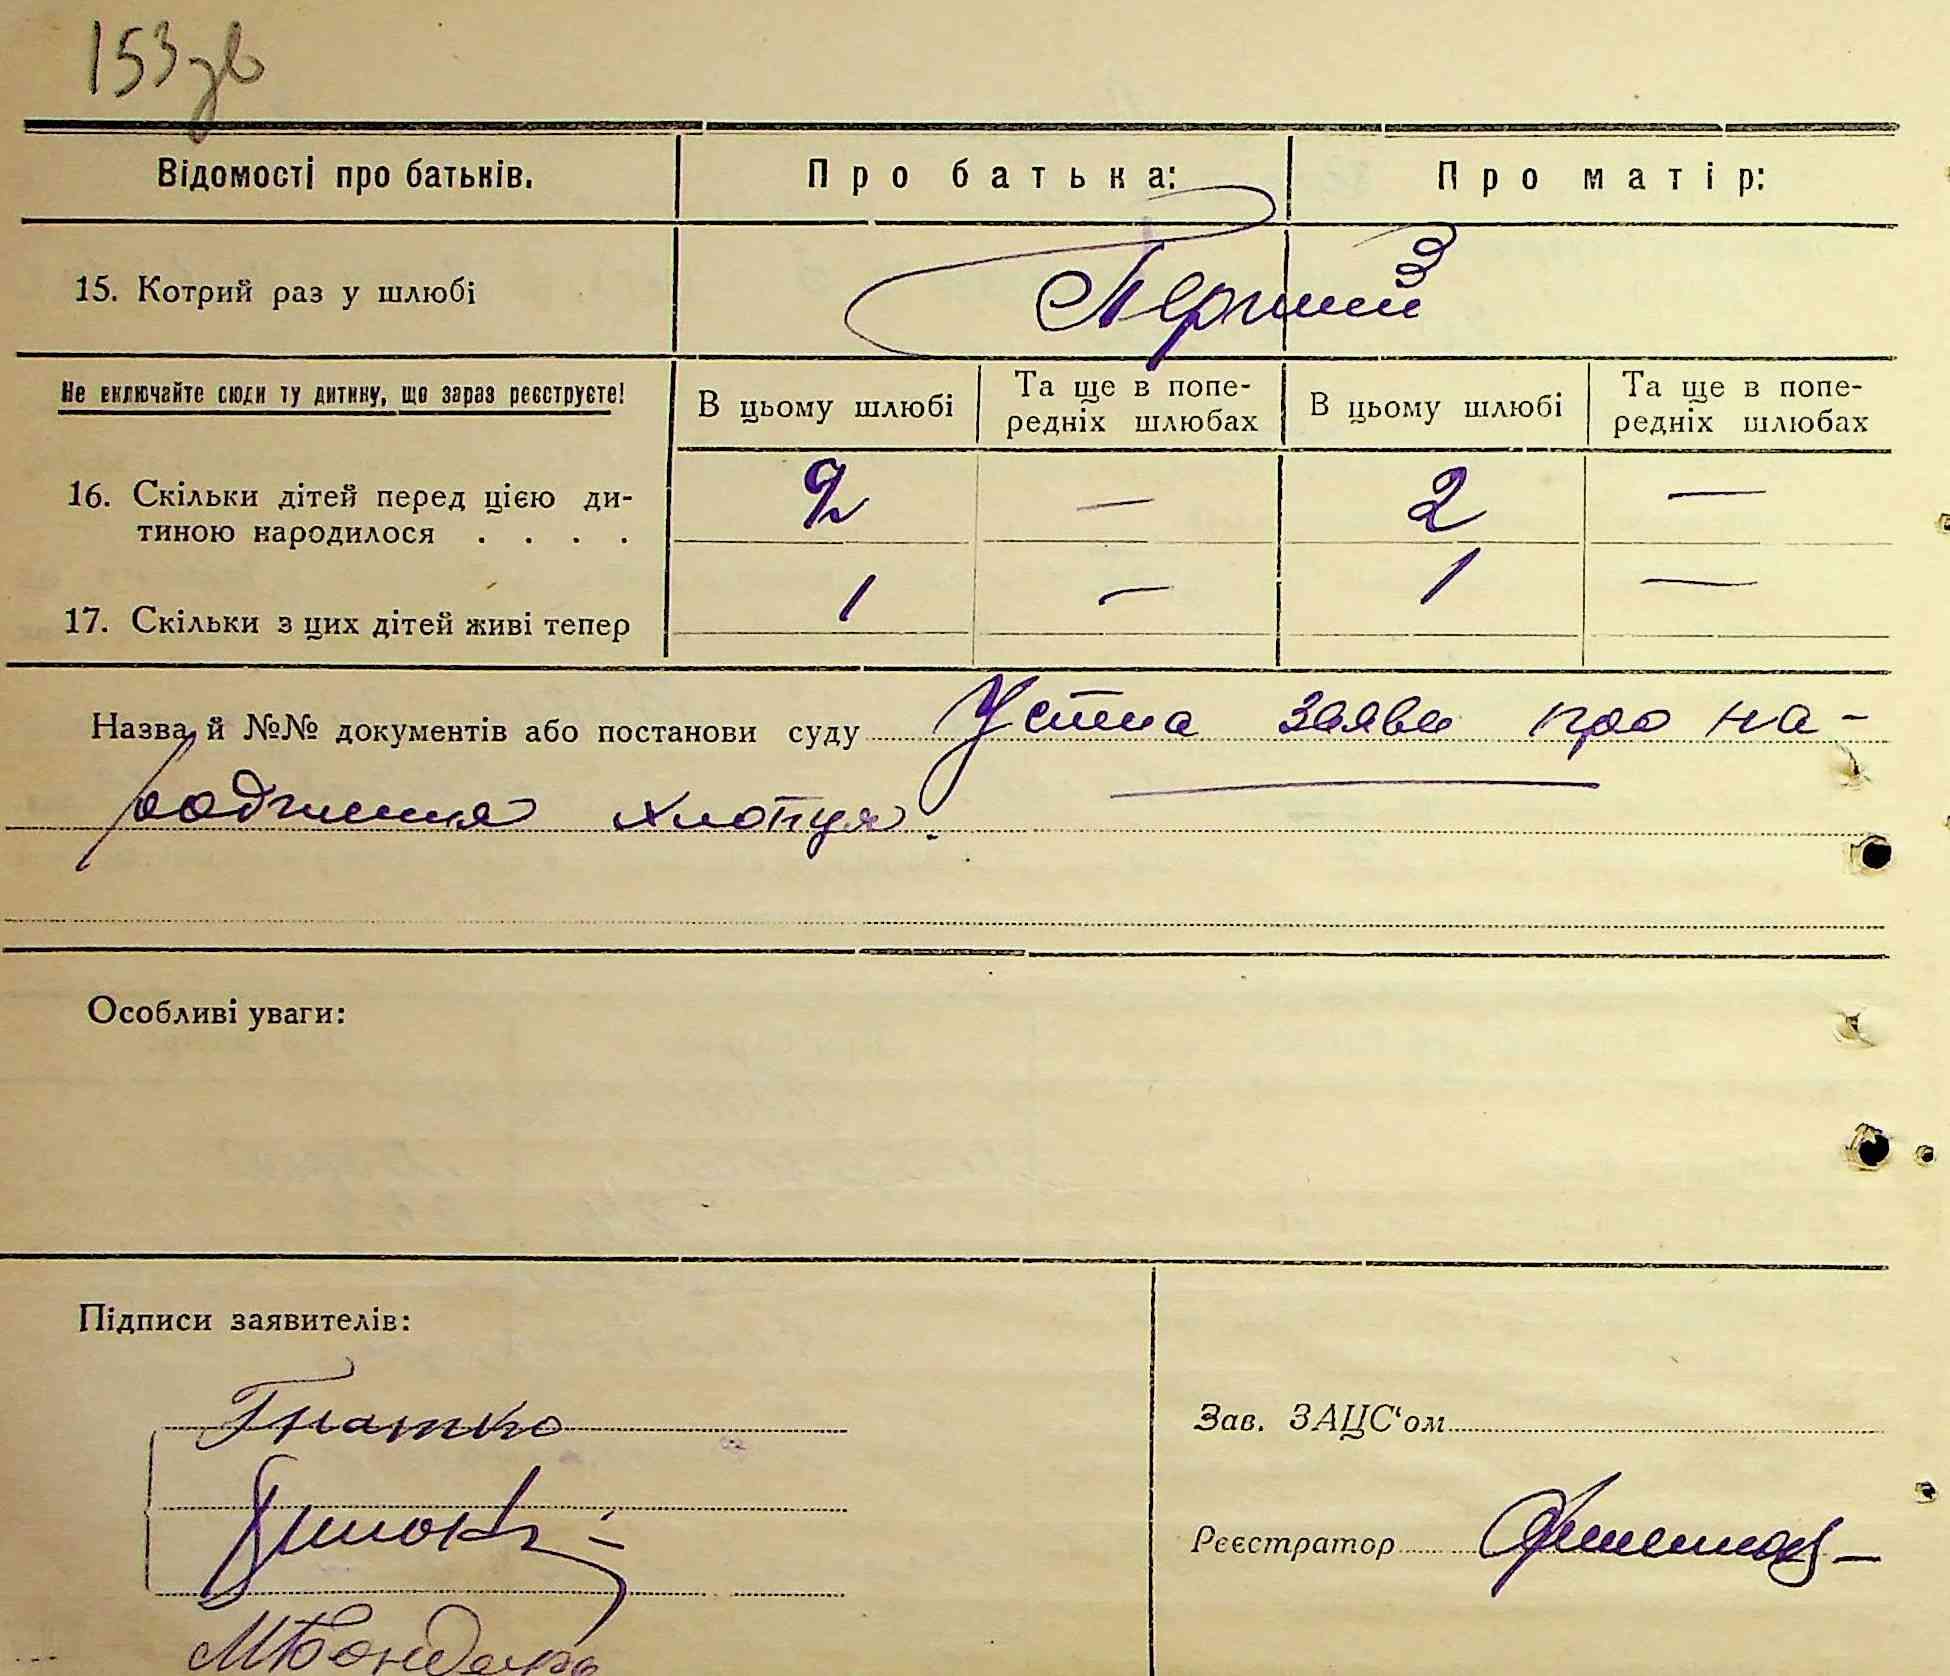 153 зв
Відомості про батьків.
Про батька:
Про матір:
15. Котрий раз у шлюбі
Перший
Не включайте сюди ту дитину, що зараз реєструєте!
В цьому шлюбі
Та ще в попе-
редніх шлюбах
В цьому шлюбі
Та ще в попе-
редніх шлюбах
16. Скільки дітей перед цією ди-
тиною народилося . . . .
2 — 2 —
17. Скільки з цих дітей живі тепер
1 — 1 —
Назва й №№ документів або постанови суду Устна заява про на-
родження хлопця.
Особливі уваги:
Підписи заявителів:
Гнатко
МБондарь
Зав. ЗАЦС'ом
Реєстратор